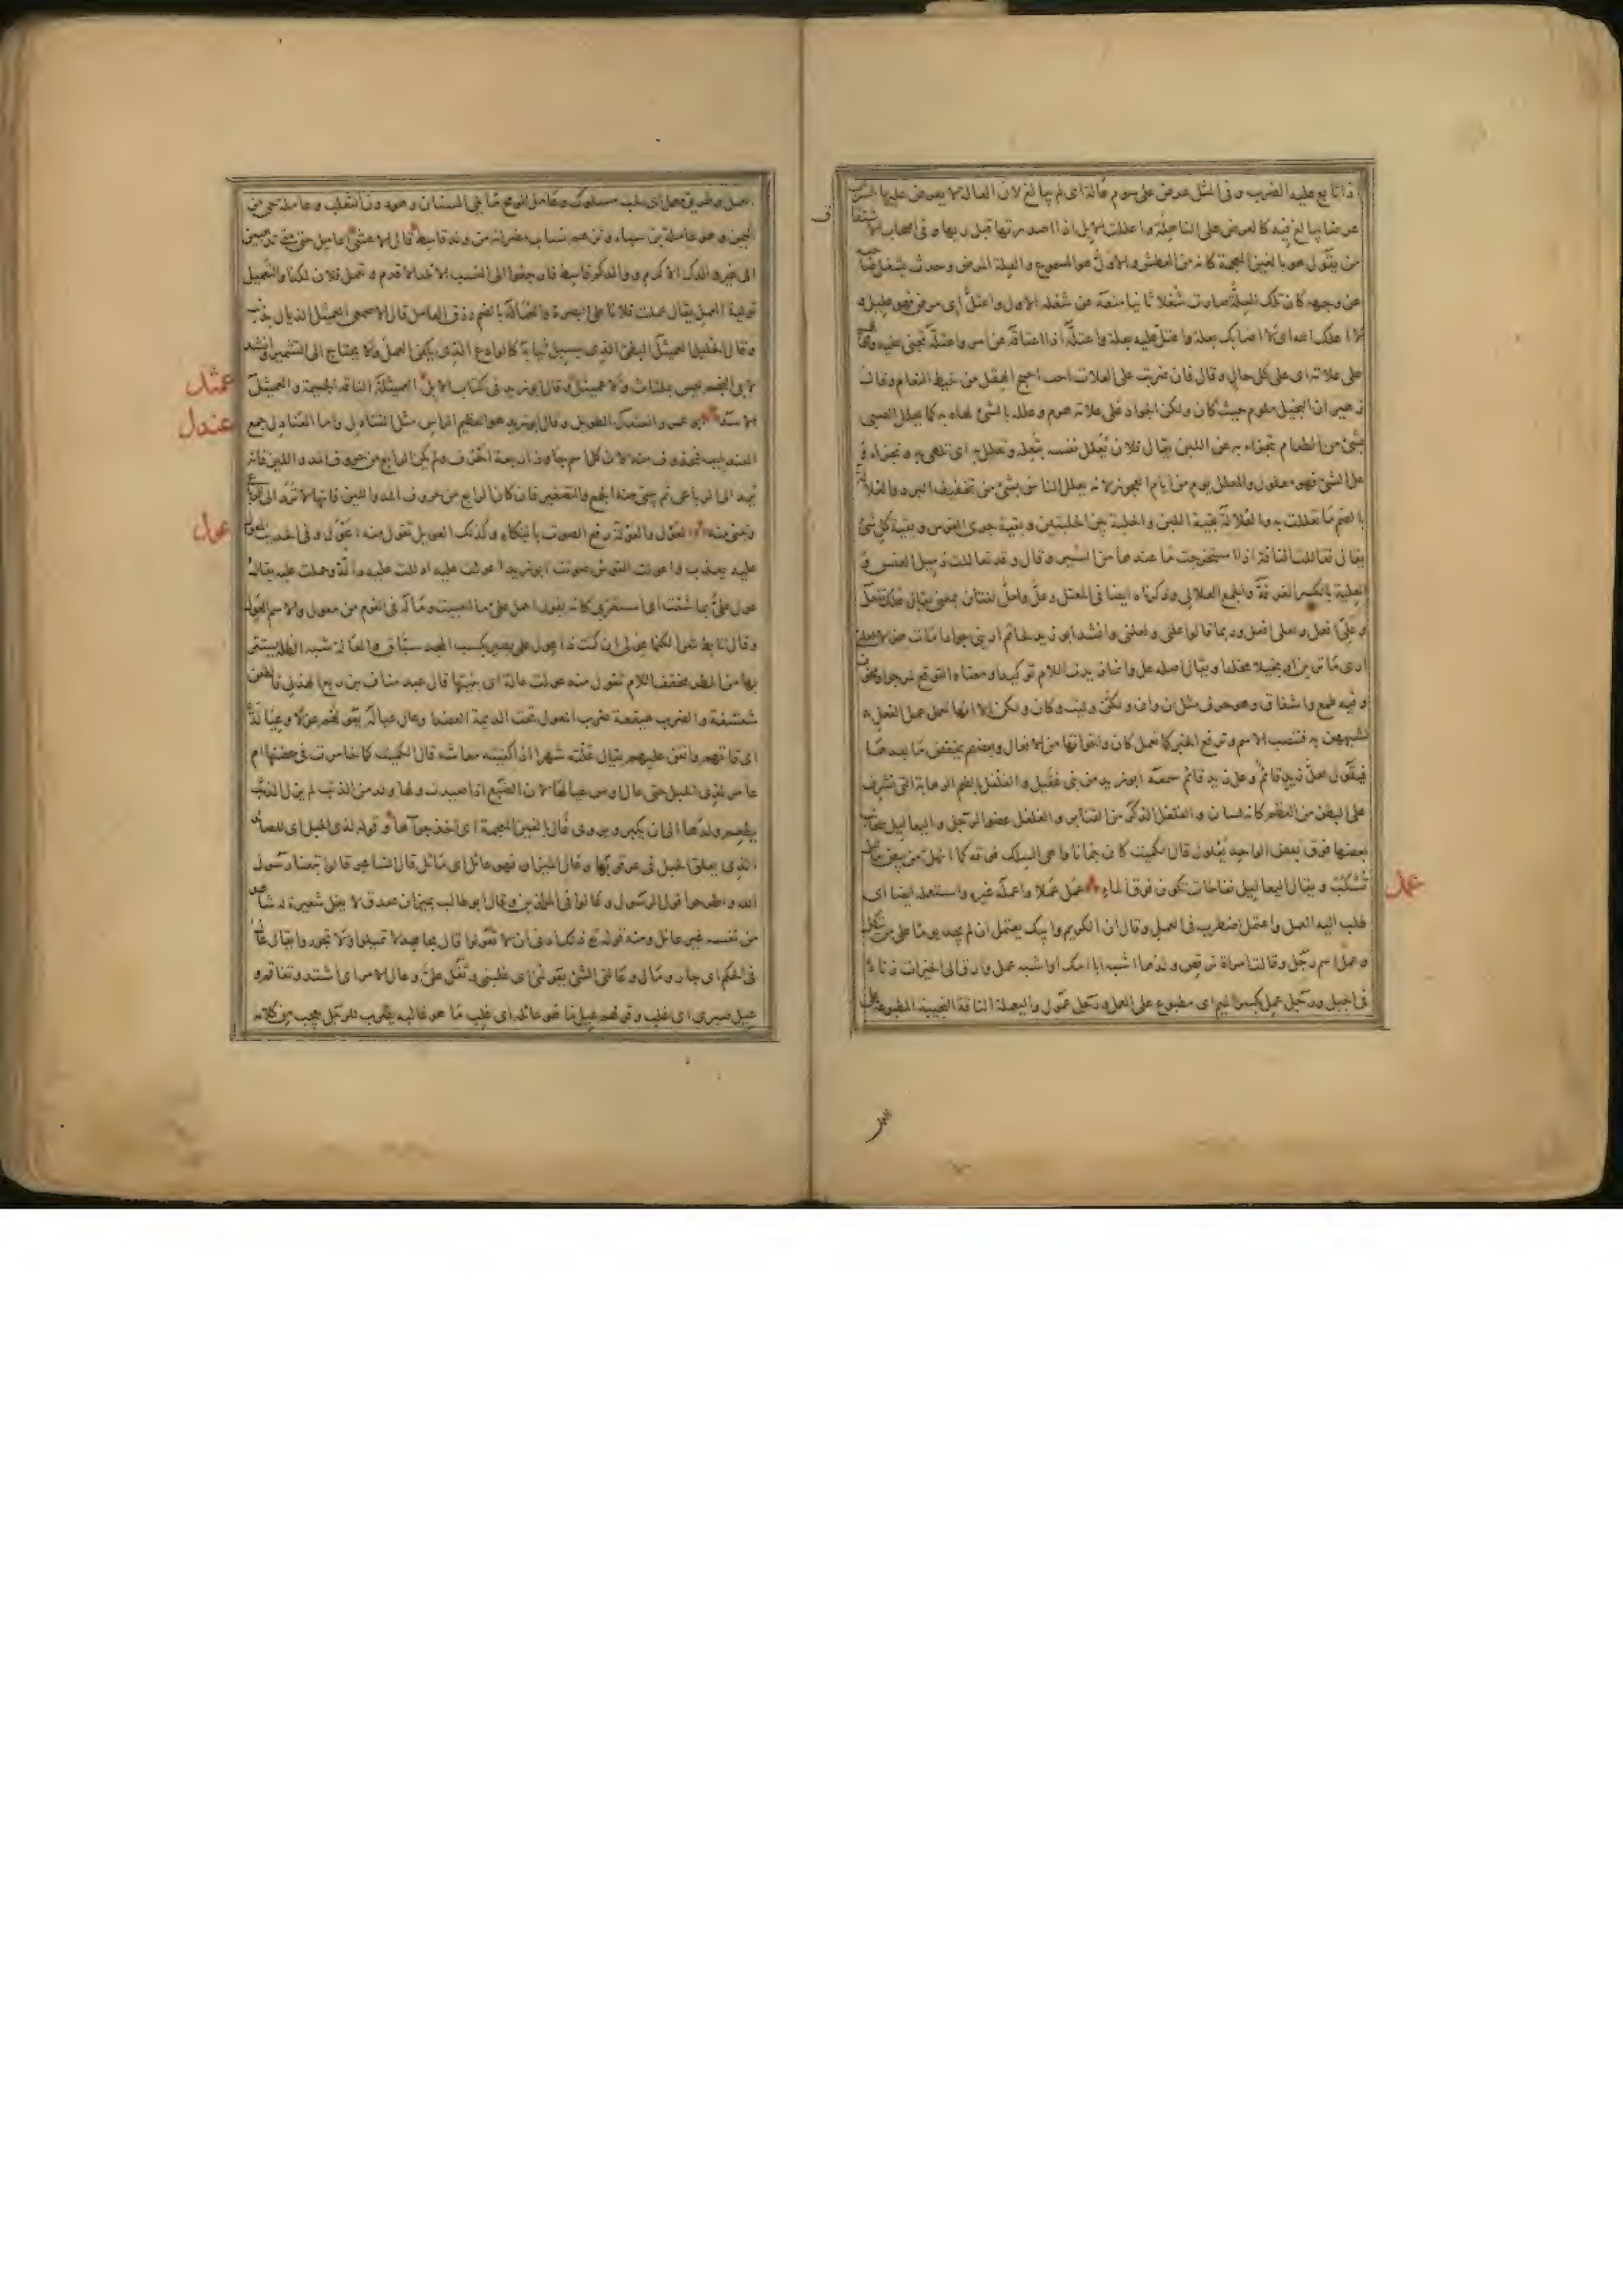 اذا تابع عليه الضرب وفى المثل عرض على سوم عالة اى لم يبالغ لان العالة لا يعرض عليها الشرب
عرضا يبالغ فيه كالعرض على الناهلة واعللت الابل اذا اصدرتها قبل ريها وفى اصحاب الاشتقاق
من يقول هو بالغين المعجمة كانه من العطش والاول هو المسموع والعلة المرض وحدث يشغل صاحبه
عن وجهه كان تلك العلة صارت شغلا ثانيا منعه عن شغله الاول واعتل اى مرض فهو عليل و
لا اعلك الله اى لا اصابك بعلة واعتل عليه بعلة واعتله اذا اعتاقه عن امر واعتله تجنى عليه وقولهم
على علاته اى على كل حال وقال فان ضربت على العلات احب احيج الهقل من خيط النعام وقال
زهير ان البخيل ملوم حيث كان ولكن الجواد على علاته هرم وعلله بالشئ لهاه به كما يعلل الصبى
بشئ من الطعام تجزاء به عن اللبن يقال فلان يعلل نفسه بتعلة وتعلل به اى تلهى به وتجزاء و
علل الشئ فهو معلول والمعلل يوم من ايام العجوز لانه يعلل الناس بشئ من تخفيف البرد والعلالة
بالضم ما تعللت به والعلالة بقية اللبن والحلبة بين الحلبتين وبقية جرى الفرس وبقية كل شئ
يقال تعاللت الناقة اذا استخرجت ما عندها من السير وقال وقد تعاللت ذميل العنس و
العلية بالكسر الغرفة والجمع العلالى وذكرناه ايضا فى المعتل وعل ولعل لغتان بمعنى يقال علك تفعل
وعلى افعل ولعلى افعل وربما قالوا علنى ولعلنى وانشد ابو زيد لحاتم ارينى جوادا مات هزلا لعلنى
ارى ما ترين او بخيلا مخلدا ويقال اصله عل وانما زيدت اللام توكيدا ومعناه التوقع لمرجو او مخوف
وفيه طمع واشفاق وهو حرف مثل ان وان ولكن وليت وكان ولكن الا انها تعمل عمل الفعل
لشبههن به فتنصب الاسم وترفع الخبر كما تعمل كان واخواتها من الافعال وبعضهم يخفض ما بعدها
فيقول لعل زيد قائم وعل زيد قائم سمعه ابو زيد من بنى عقيل والعلعل بالضم الرهابة التى تشرف
على البطن من العظم كانه لسان والعلعل الذكر من القنابر والعلعل عضو الرجل واليعاليل سحائب
بعضها فوق بعض الواحد يعلول قال الكميت كان جمانا واهى السلك فوقه كما انهل من بيض يعاليل
تسكب ويقال اليعاليل نفاخات تكون فوق الماء عمل عملا واعمله غيره واستعمله ايضا اى
طلب اليه العمل واعتمل اضطرب فى العمل وقال ان الكريم وابيك يعتمل ان لم يجد يوما على من يتكل
وعمل اسم رجل وقالت امراة ترقص ولدها اشبه ابا امك او اشبه عمل وارق الى الخيرات زناء
فى الجبل ورجل عمل بكسر الميم اى مطبوع على العمل ورجل عمول واليعملة الناقة النجيبة المطبوعة على
عمل
العمل وطريق معمل اى لحب مسلوك وعامل الرمح ما يلى السنان وهو دون الثعلب وعاملة حى من
اليمن وهو عاملة بن سباء وتزعم نساب مضر انه من ولد قاسط قال الاعشى اعامل حتى متى تذهبين
الى غير والدك الاكرم ووالدكم قاسط فارجعوا الى النسب الاتلد الاقدم وتعمل فلان لكذا والتعميل
تولية العمل يقال عملت فلانا على البصرة والعمالة بالضم رزق العامل قال الاصمعى العميثل الذيال بذنبه
وقال الخليل العميثل البطئ الذى يسبل ثيابه كالوادع الذى يكفى العمل ولا يحتاج الى التشمير وانشد
لابى النجم ليس بملتاث ولا عميثل وقال ابو زيد فى كتاب الابل العميثلة الناقة الجسيمة والعميثل
الاسد ابو عمرو العندل الطويل وقال ابو زيد هو العظيم الراس مثل القندل واما العنادل جمع
العندليب فمحذوف منه لان كل اسم جاوز اربعة احرف ولم يكن الرابع من حروف المد واللين فانه
يرد الى الرباعى ثم يبنى منه الجمع والتصغير فان كان الرابع من حروف المد واللين فانها لا ترد الى الرباعى
وتبنى منه العول والعولة رفع الصوت بالبكاء وكذلك العويل تقول منه اعول وفى الحديث المعول
عليه يعذب واعولت القوس صوتت ابو زيد اعولت عليه ادللت عليه دالة وحملت عليه يقال
عول على بما شئت اى استعن بى كانه يقول احمل على ما احببت وما له فى القوم من معول والاسم العول
وقال تابط شرا لكنما عولى ان كنت ذا عول على بصير بكسب المجد سباق والعالة شبه الظلة يستتر
بها من المطر مخففة اللام تقول منه عولت عالة اى بنيتها قال عبد مناف بن ربع الهذلى فالطعن
شغشغة والضرب هيقعة ضرب المعول تحت الديمة العضدا وعال عياله يعولهم عولا وعيالة
اى قاتهم وانفق عليهم يقال علته شهرا اذا كفيته معاشه قال الكميت كما خامرت فى حضنها ام
عامر لذى الحبل حتى عال اوس عيالها لان الضبع اذا صيدت ولها ولد من الذئب لم يزل الذئب
يطعم ولدها الى ان يكبر ويروى غال بالغين المعجمة اى اخذ جراها وقوله لذى الحبل اى للصائد
الذى يعلق الحبل فى عرقوبها وعال الميزان فهو عائل اى مائل قال الشاعر قالوا تبعنا رسول
الله واطرحوا قول الرسول وعالوا فى الموازين وقال ابو طالب بميزان صدق لا يغل شعيرة له شاهد
من نفسه غير عائل ومنه قوله تع ذلك ادنى ان لا تعولوا قال مجاهد لا تميلوا ولا تجوروا يقال عال
فى الحكم اى جار ومال وعالنى الشئ يعولنى اى غلبنى وثقل على وعال الامر اى اشتد وتفاقم و
عيل صبرى اى غلب وقولهم عيل ما هو عائله اى غلب ما هو غالبه يضرب للرجل يعجب من كلامه
عمثل
عندل
عول